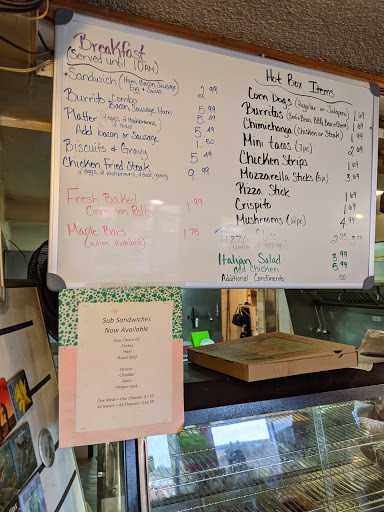 Breakfast
(Served until 10AM)
Sandwich (Ham, Bacon, Sausage
Egg & Cheese 2 99
Burrito Combo
Bacon, Sausage, Ham 5 99
Platter (2 eggs, 2 hashbrowns,
2 toast 5 49
Add bacon or Sausage 1 50
Biscuits & Gravy 5 49
Chicken Fried Steak 9 99
2 eggs, 2 hashbrowns, 2 toast, gravy
Fresh Baked
Cinnamon Rolls 1 99
Maple Bars 1 75
(when available)
Hot Box Items
Corn Dogs (Regular or Jalapeno) 1 69
Burritos
Chimichanga (Chicken or Steak)
Mini tacos (7pc)
Chicken Strips 1 69
Mozzarella Sticks (5pc) 3 69
Pizza Stick
Crispito 1 69
Mushrooms
Italian Salad 3 99
add chicken 5 99
Additional Condiments 50
Sub Sandwiches
Now Available
Your Choice Of:
Turkey
Ham
Roast Beef
Cheese:
Cheddar
Swiss
Pepper Jack